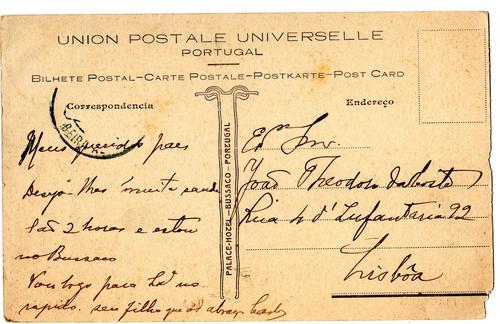 UNION POSTALE UNIVERSELLE
PORTUGAL
BILHETE POSTAL-CARTE POSTALE-POSTKARTE-POST CARD
Correspondencia
Endereço
Meus queridos paes
Desejo-lhes muita saude
São 2 horas e estou
no Bussaco
Vou logo para Lxª no
rapido. seu filho que os abraça
PALACE-HOTEL-BUSSACO-PORTUGAL
Exmo Snr.
João Theodoro da Costa
Rua 4 d'Infantaria 92
Lisbôa